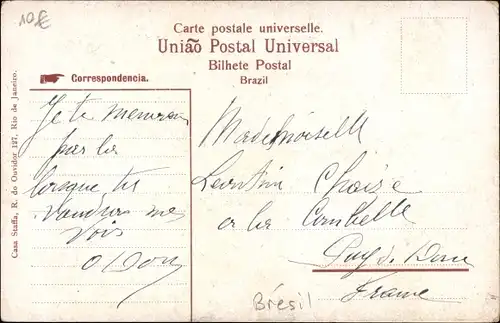 10€
Carte postale universelle.
União Postal Universal
Bilhete Postal
Brazil
Correspondencia.
Casa Staffa, R. do Ouvidor 127, Rio de Janeiro.
Je te
par la
lorsque tu
me
Vois
Mademoiselle
Leontine Choise
a la Combelle
Puy de Dome
France
Brésil